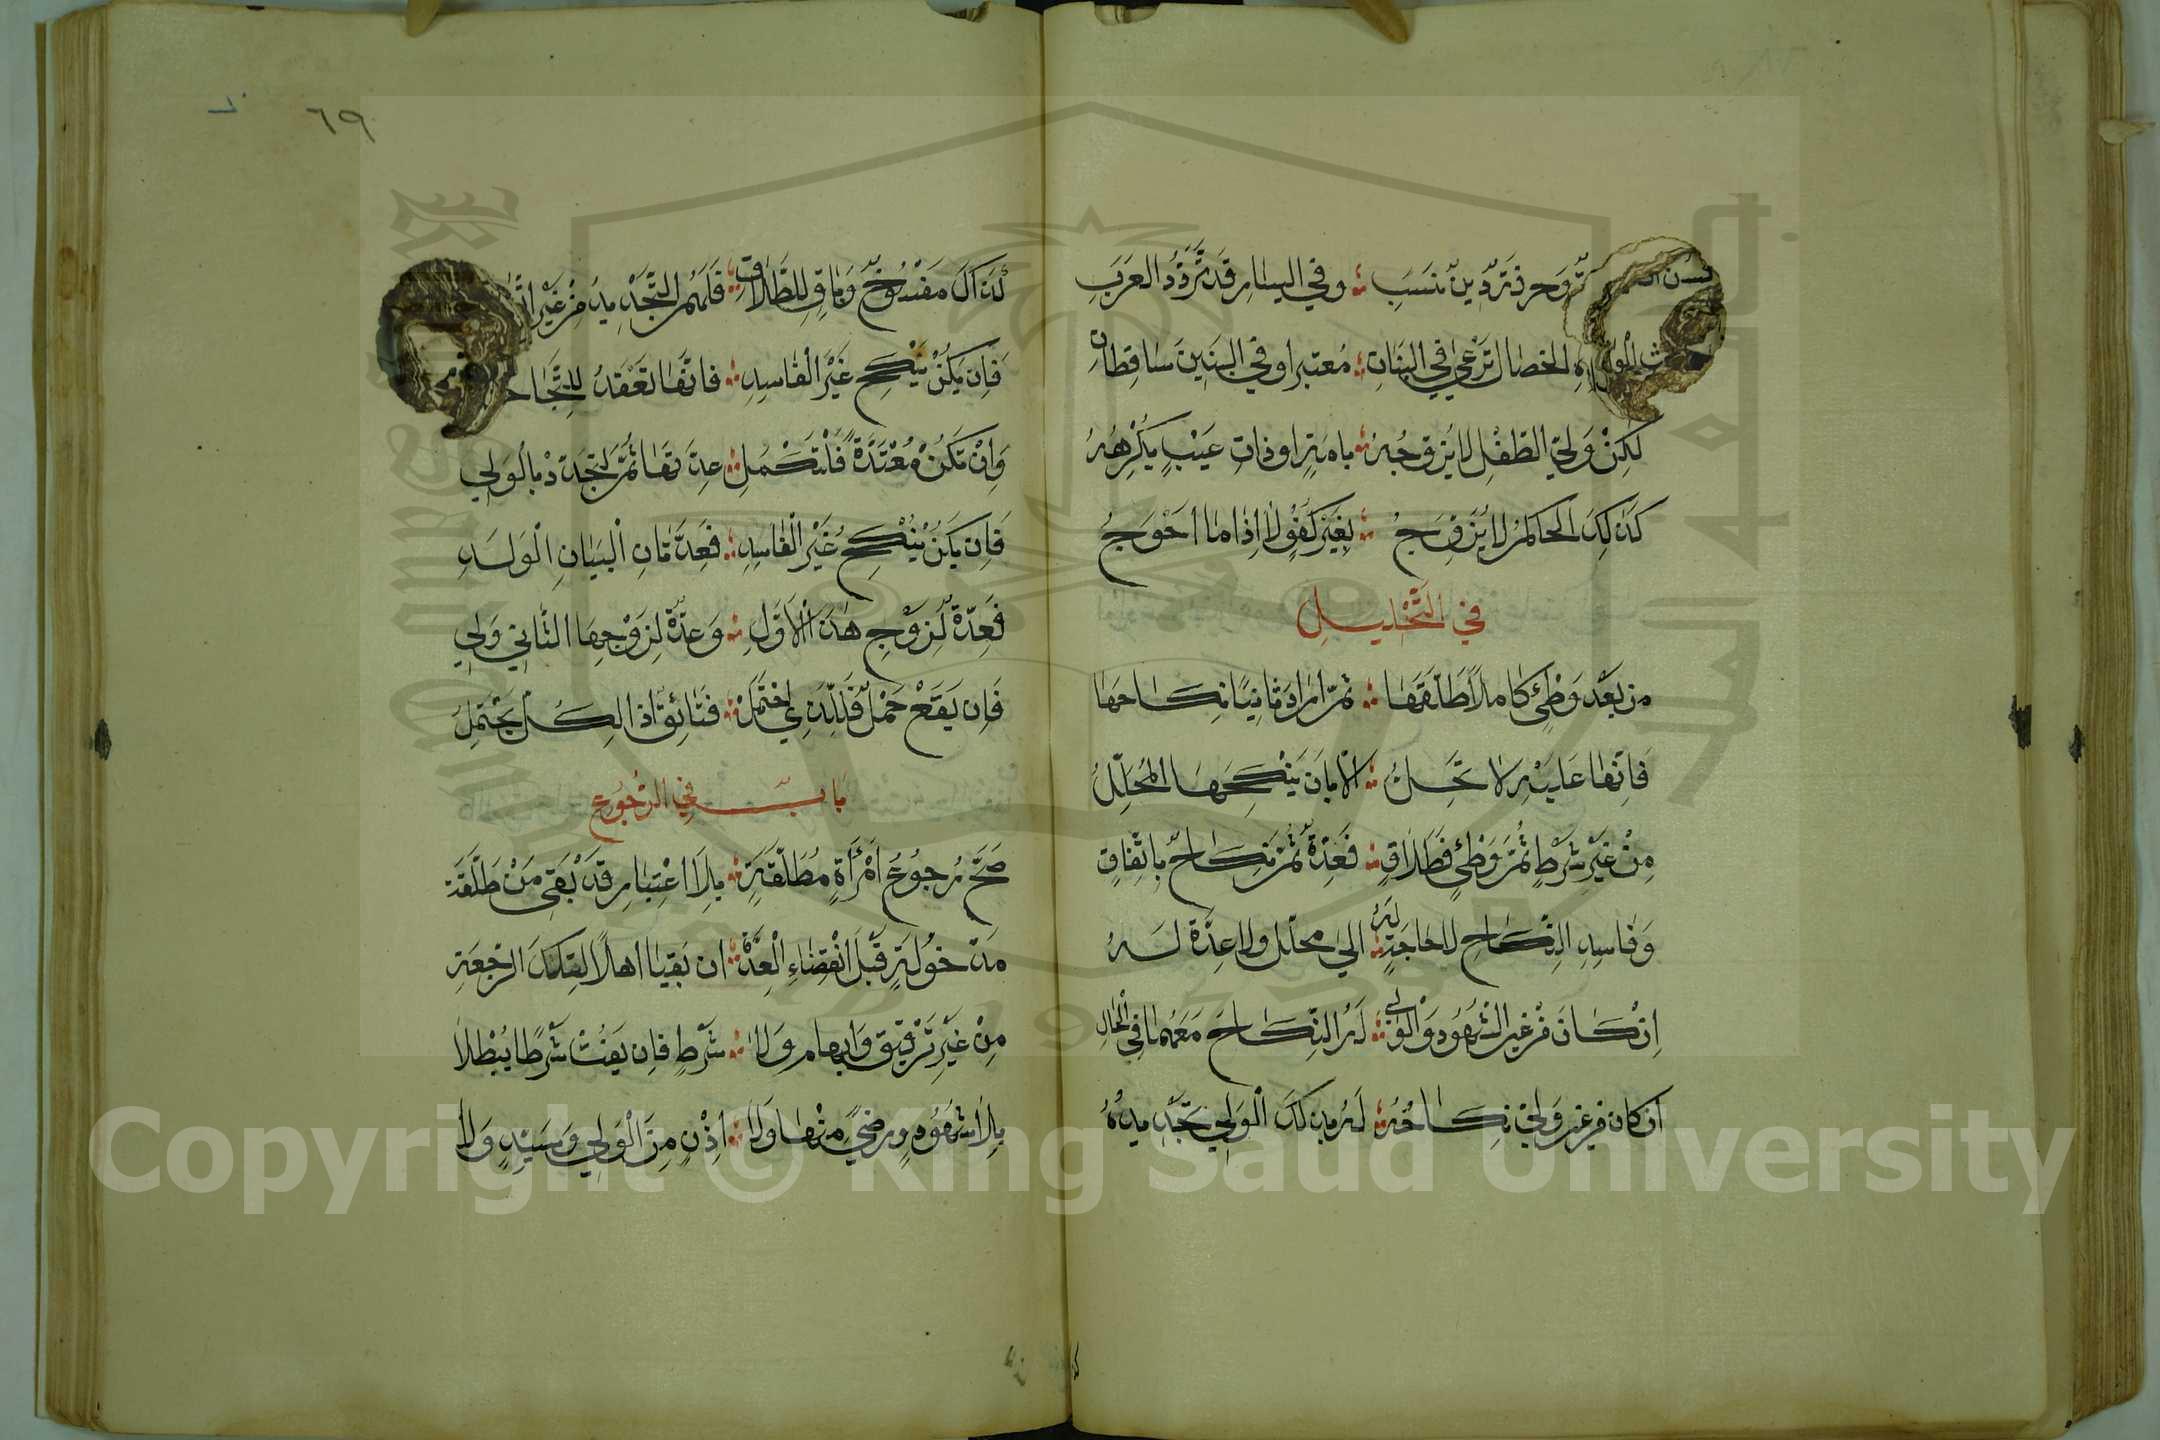 وحرفة دين نسب وفي اليسار قد تردد العرب
الخصال ترعى في البنات معتبرا وفي البنين ساقطات
لكن ولي الطفل لا يزوجه بامة او ذات عيب يكرهه
كذلك الحاكم لا يزوج بغير كفو لا اذا ما احوج
في التحليل
من بعد وطئ كاملا طلقها ثم اراد ثانيا نكاحها
فانها عليه لا تحل الا بان ينكحها المحلل
من غير شرط ثم وطئ فطلاق فعدة ثم نكاح باتفاق
وفاسد النكاح لا حاجة له الى محلل ولا عدة له
ان كان من غير الشهود والولي له النكاح معهما في الحال
ان كان من غير ولي نكاحه له بذلك الولي تجديده
٦٩
كذاك مفسوخ وباق للطلاق فلهم التجديد من غير
فان يكن ينكح غير الفاسد فانها تعقد
وان تكن معتدة فلتكمل عدتها ثم لتجدد بالولي
فان يكن ينكح غير الفاسد فعدتان البيان الولد
فعدة لزوج هذا الاول وعدة لزوجها الثاني ولي
فان يقع حمل فللذي احتمل فتائق اذ الكل يحتمل
باب في الرجوع
صح رجوع امرأة مطلقة بلا اعتبار قد بقى من طلقة
مدخولة قبل انقضاء العدة ان بقيا اهلا لتلك الرجعة
من غير ترقيق وابهام ولا شرط فان يفت شرطا يبطلا
بلا شهود ورضى منها ولا اذن من الولي وسيد ولا
Copyright © King Saud University